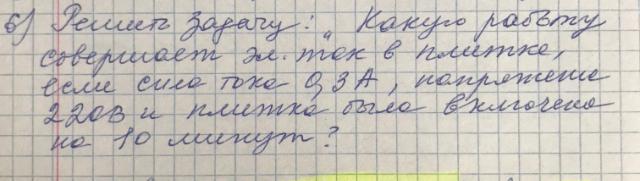 6) Решить задачу: „Какую работу
совершает эл. ток в плитке,
если сила тока 0,3А, напряжение
220В и плитка была включена
на 10 минут?